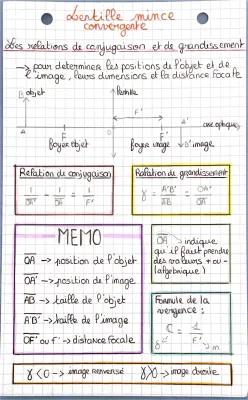 Lentille mince
convergente
Les relations de conjugaison et de grandissement
→ pour déterminer les positions de l'objet et de
l'image, leurs dimensions et la distance focale
B objet
lentille
F'
A'
A
O
F
F'
axe optique
foyer objet
foyer image
B' image
Relation de conjugaison
1/OA' - 1/OA = 1/F'
Relation de grandissement
γ = A'B'/AB = OA'/OA
MEMO
OA → position de l'objet
OA' → position de l'image
AB → taille de l'objet
A'B' → taille de l'image
OF' ou f' → distance focale
OA → indique
qu'il faut prendre
des valeurs + ou -
(algébrique)
Formule de la
vergence :
C = 1/F'
δ
m
γ<0 → image renversé
γ>0 → image droite